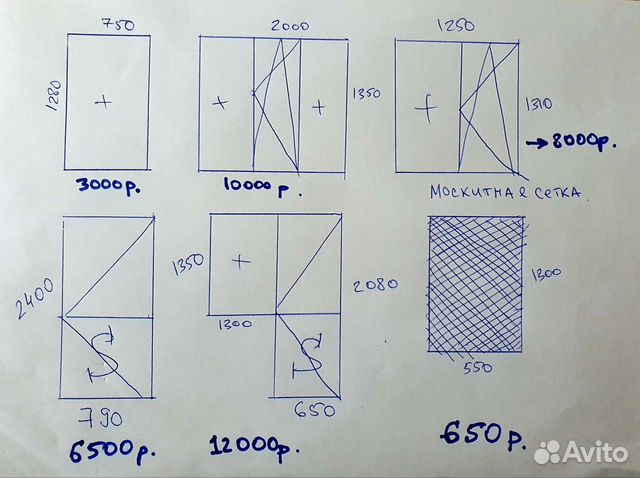 750
1280
3000р.
2000
1350
10000р.
1250
1310
→ 8000р.
МОСКИТНАЯ СЕТКА
2400
790
6500р.
1350
1300
2080
650
12000р.
1300
550
650р.
Avito